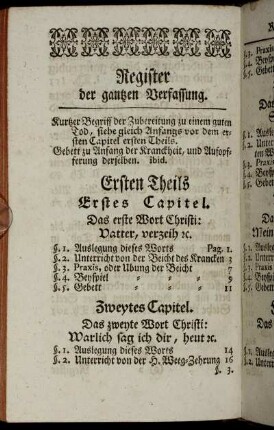 Register
der gantzen Verfassung.
Kurtzer Begriff der Zubereitung zu einem guten
Tod, siehe gleich Anfangs vor dem er-
sten Capitel ersten Theils.
Gebett zu Anfang der Kranckheit, und Aufopf-
ferung derselben. ibid.
Ersten Theils
Erstes Capitel.
Das erste Wort Christi:
Vatter, verzeih ꝛc.
§. 1. Auslegung dieses Worts Pag. 1.
§. 2. Unterricht von der Beicht des Krancken 3
§. 3. Praxis, oder Übung der Beicht 7
§. 4. Beyspiel 9
§. 5. Gebett 11
Zweytes Capitel.
Das zweyte Wort Christi:
Warlich sag ich dir, heut ꝛc.
§. 1. Auslegung dieses Worts 14
§. 2. Unterricht von der H. Weeg-Zehrung 16
§. 3.